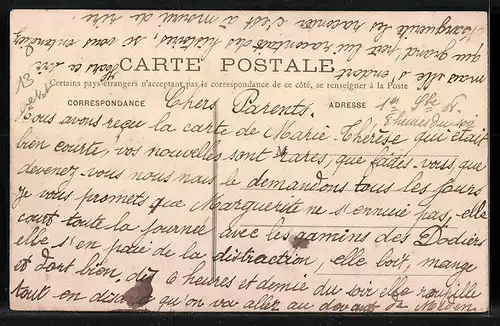 CARTE POSTALE
Certains pays étrangers n'acceptant pas la correspondance de ce côté, se renseigner à la Poste
CORRESPONDANCE
ADRESSE
Chers Parents.
8 heures du soir
Nous avons reçu la carte de Marie-Thérèse qui était
bien courte, vos nouvelles sont rares, que faites-vous, que
devenez vous nous nous le demandons tous les jours
je vous promets que Marguerite ne s'ennuie pas, elle
court toute la journée avec les gamins des Dodiers
elle s'en paie de la distraction, elle boit, mange
et dort bien. dès 6 heures et demie du soir elle roupille
tout en disant qu'on va aller au devant de
mais elle s'endort
que grand'mère lui racontait des histoires, si vous entendiez
Marguerite les raconter c'est à mourir de rire.